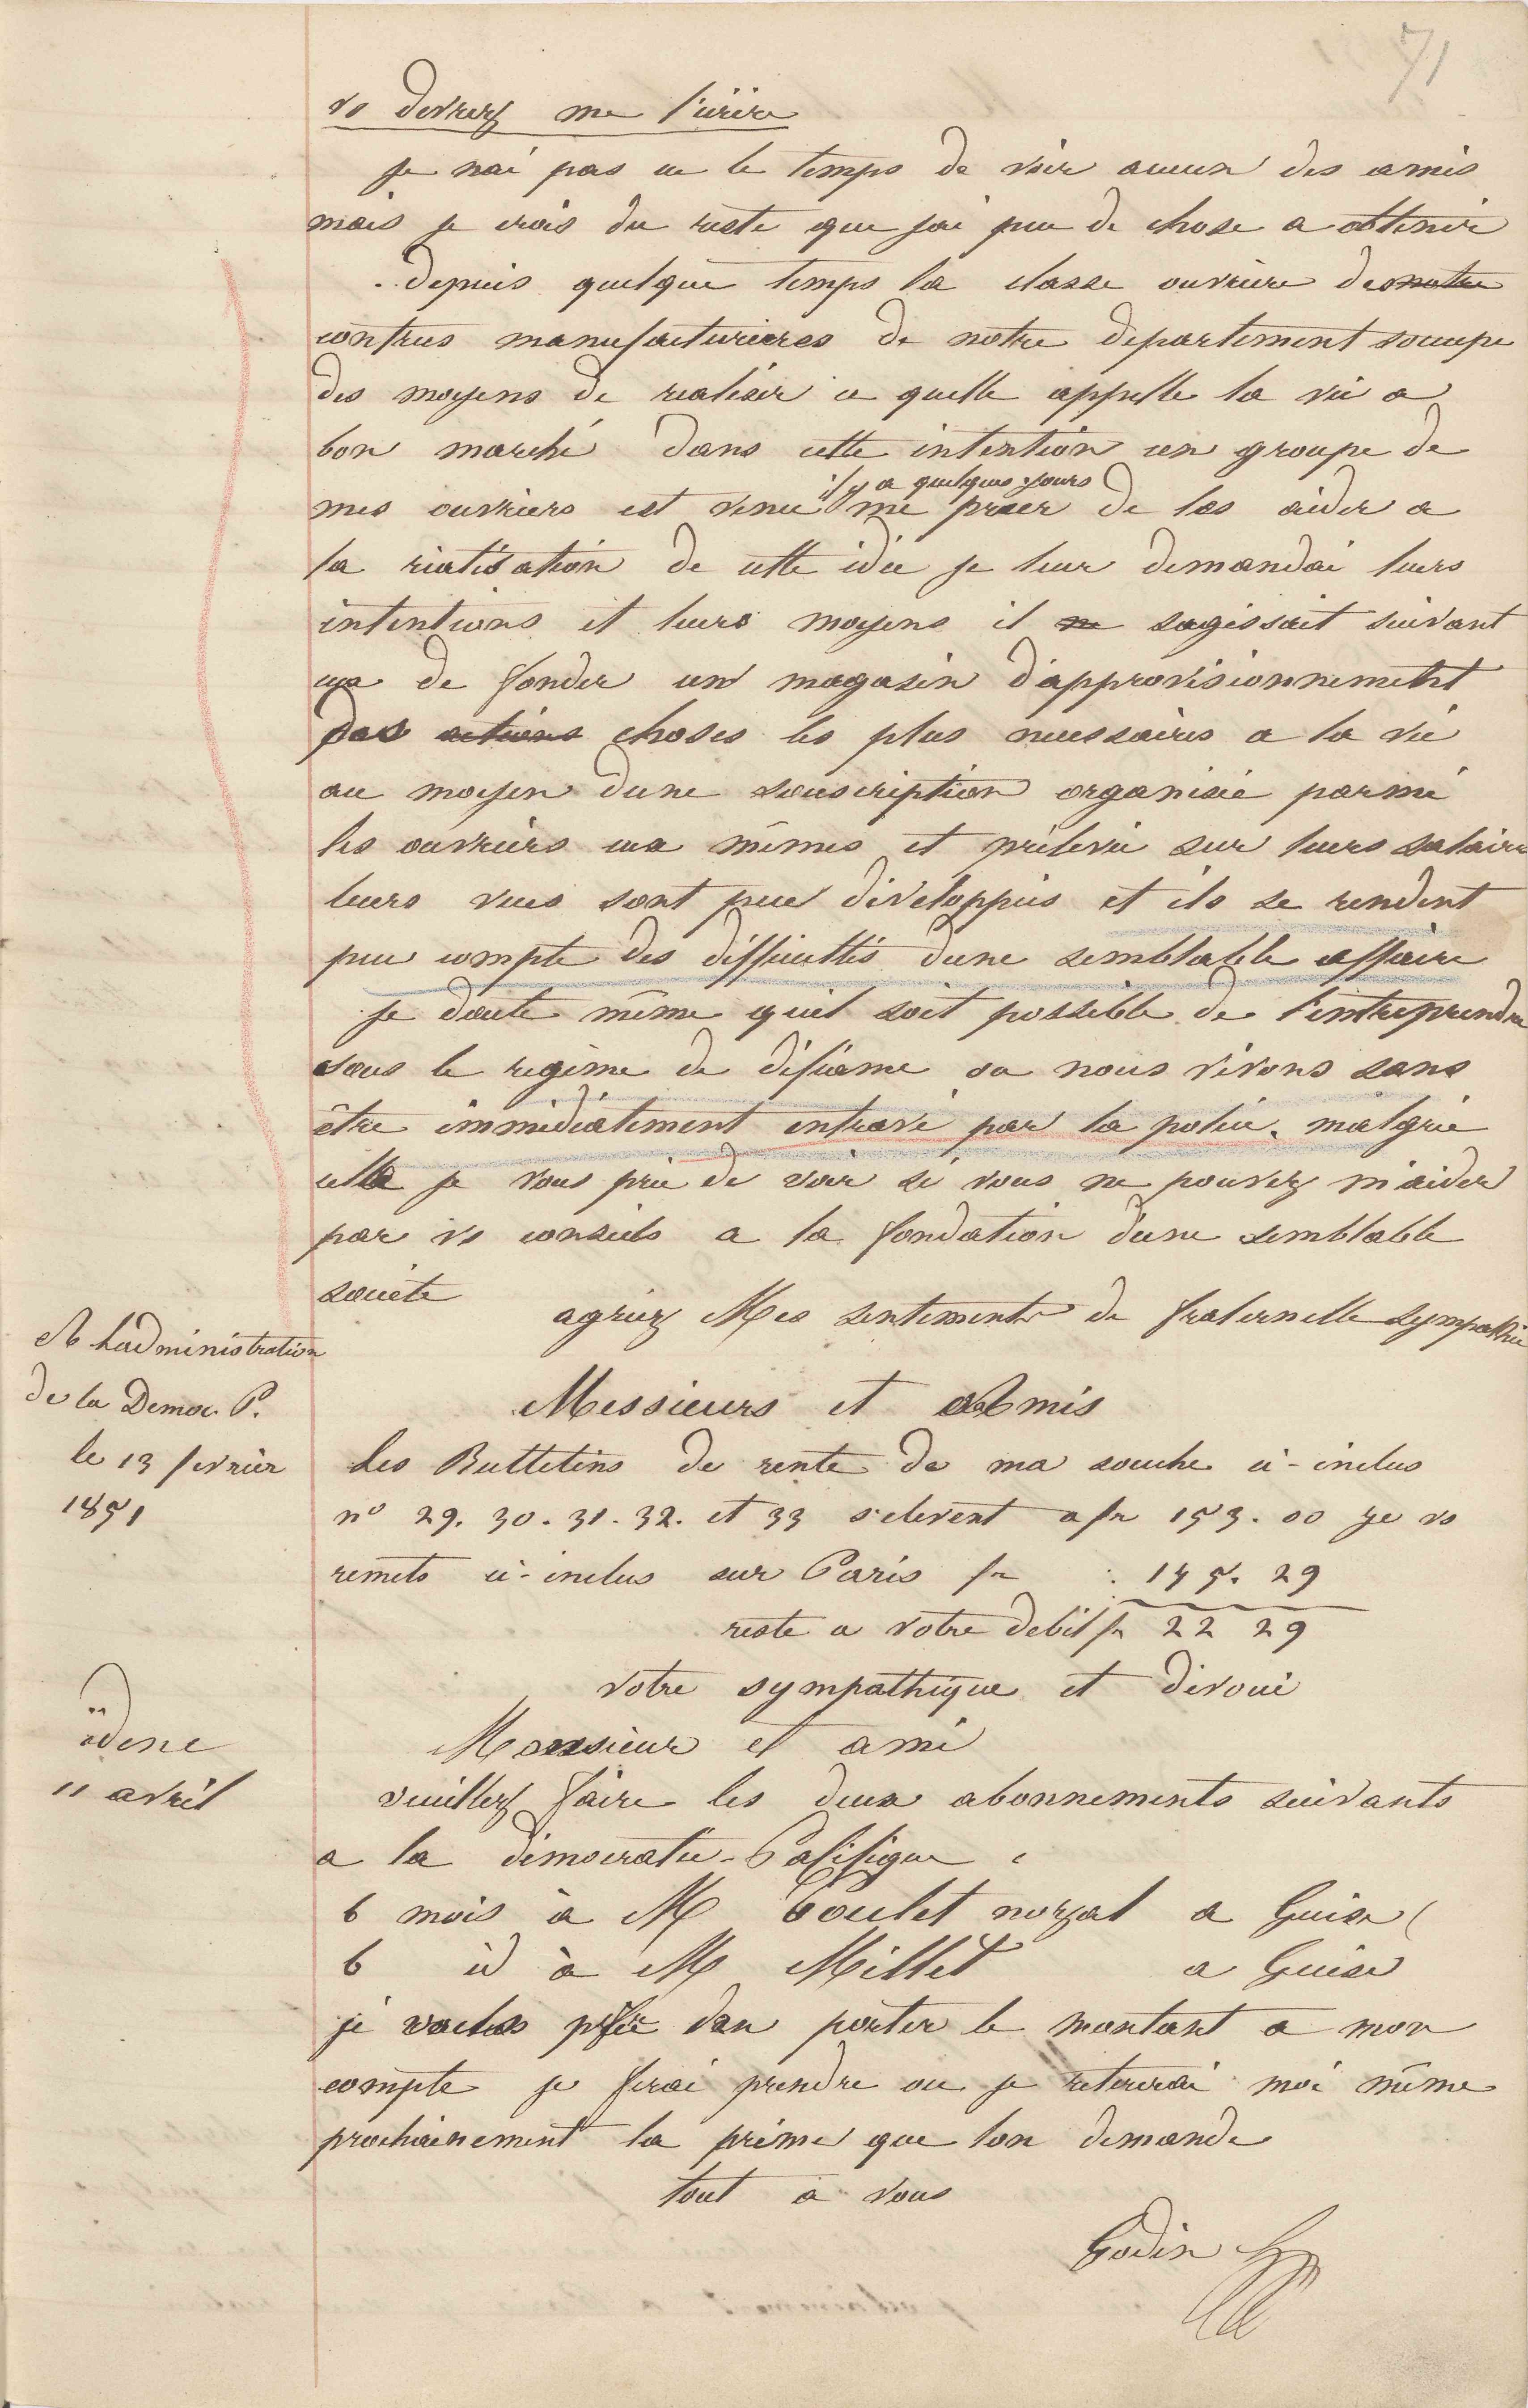 71
vs devrez me l'ecrire
je nai pas eu le temps de voir aucun des amis
mais je crois du reste que jai peu de chose a obtenir
depuis quelque temps la classe ouvriere des notre
centres manufacturieres de notre departement socupe
des moyens de realiser ce quelle appelle la vie a
bon marché dans cette intention un groupe de
il y a quelques jours
mes ouvriers est venu me prier de les aider a
la réalisation de cette idée je leur demandai leurs
intentions et leurs moyens il ne sagissait suivant
eux de fonder un magasin d'approvisionnement
des actions choses les plus necessaires a la vie
au moyen dune souscription organisée parmi
les ouvriers eux mêmes et prélevée sur leurs salaires
leurs vues sont peu développées et ils se rendent
peu compte des difficultés dune semblable affaire
je doute même quil soit possible de l'entreprendre
sous le regime de défiance ou nous vivons sans
être immédiatement entravé par la police. malgré
cela je vous prie de voir si vous ne pouvez m'aider
par vs conseils a la fondation dune semblable
societe
agréez Mes sentiments de fraternelle sympathie
A Ladministration
de la Democ. P.
le 13 fevrier
1851
Messieurs et Amis
Les Bulletins de rente de ma souche ci-inclus
n° 29. 30. 31. 32. et 33 s'elevent a fr 153.00 je vs
remets ci-inclus sur Paris fr 175. 29
reste a votre debit fr 22 29
votre sympathique et dévoué
idem
11 avril
Monsieur et ami
veuillez faire les deux abonnements suivants
a la démocratie-Pacifique
6 mois à M Poulet norzal a Guise
6 id à M Millet a Guise
je vous prie den porter le montant a mon
compte je ferai prendre ou je retirerai moi même
prochainement la prime que lon demande
tout a vous
Godin